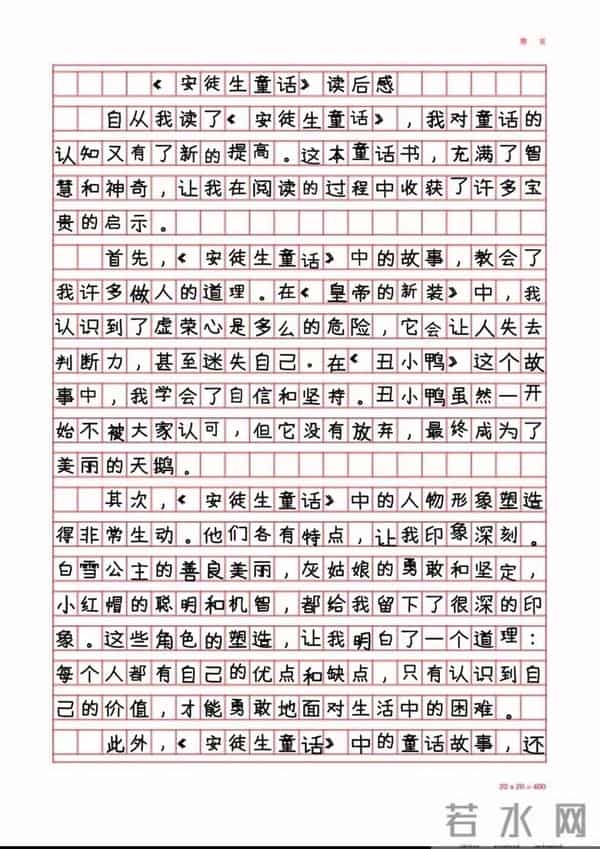 《安徒生童话》读后感
自从我读了《安徒生童话》，我对童话的
认知又有了新的提高。这本童话书，充满了智
慧和神奇，让我在阅读的过程中收获了许多宝
贵的启示。
首先，《安徒生童话》中的故事，教会了
我许多做人的道理。在《皇帝的新装》中，我
认识到了虚荣心是多么的危险，它会让人失去
判断力，甚至迷失自己。在《丑小鸭》这个故
事中，我学会了自信和坚持。丑小鸭虽然一开
始不被大家认可，但它没有放弃，最终成为了
美丽的天鹅。
其次，《安徒生童话》中的人物形象塑造
得非常生动。他们各有特点，让我印象深刻。
白雪公主的善良美丽，灰姑娘的勇敢和坚定，
小红帽的聪明和机智，都给我留下了很深的印
象。这些角色的塑造，让我明白了一个道理：
每个人都有自己的优点和缺点，只有认识到自
己的价值，才能勇敢地面对生活中的困难。
此外，《安徒生童话》中的童话故事，还
20 x 20 = 400
若水网